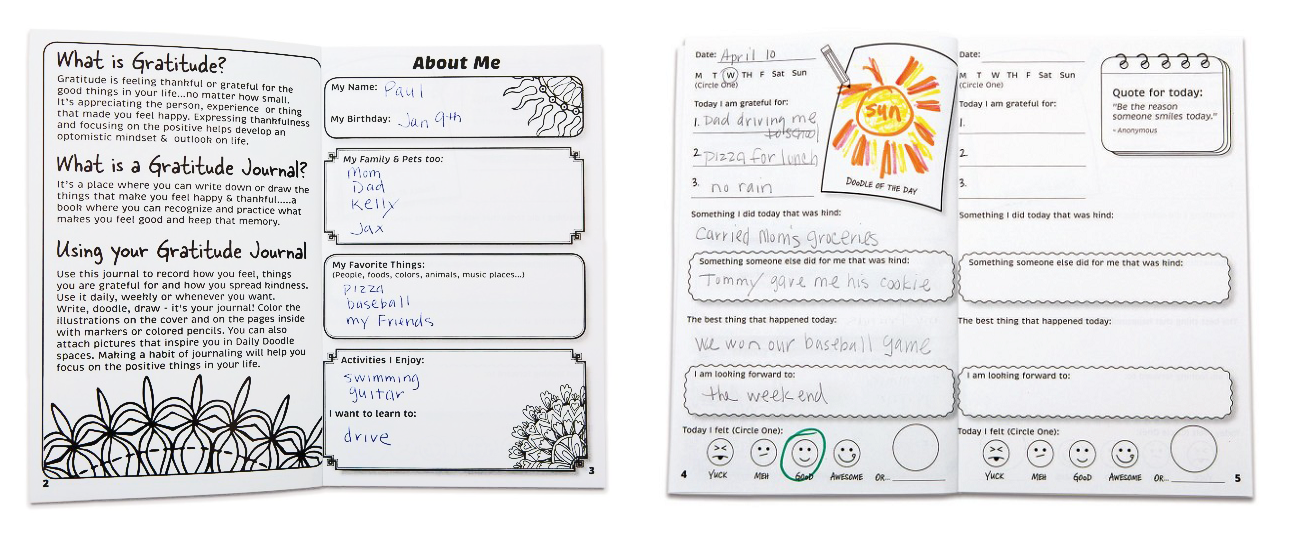 What is Gratitude?
Gratitude is feeling thankful or grateful for the
good things in your life...no matter how small.
It's appreciating the person, experience or thing
that made you feel happy. Expressing thankfulness
and focusing on the positive helps develop an
optomistic mindset & outlook on life.
What is a Gratitude Journal?
It's a place where you can write down or draw the
things that make you feel happy & thankful.....a
book where you can recognize and practice what
makes you feel good and keep that memory.
Using your Gratitude Journal
Use this journal to record how you feel, things
you are grateful for and how you spread kindness.
Use it daily, weekly or whenever you want.
Write, doodle, draw - it's your journal! Color the
illustrations on the cover and on the pages inside
with markers or colored pencils. You can also
attach pictures that inspire you in Daily Doodle
spaces. Making a habit of journaling will help you
focus on the positive things in your life.
2
About Me
My Name: Paul
My Birthday: Jan 9th
My Family & Pets too:
Mom
Dad
Kelly
Jax
My Favorite Things:
(People, foods, colors, animals, music places...)
pizza
baseball
my Friends
Activities I Enjoy:
swimming
guitar
I want to learn to:
drive
3
Date: April 10
M T W TH F Sat Sun
(Circle One)
Today I am grateful for:
1. Dad driving me
to school
2. pizza for lunch
3. no rain
sun
DOODLE OF THE DAY
Something I did today that was kind:
Carried Mom's groceries
Something someone else did for me that was kind:
Tommy gave me his cookie
The best thing that happened today:
We won our baseball game
I am looking forward to:
the weekend
Today I felt (Circle One):
YUCK MEH GOOD AWESOME OR...
4
Date:
M T W TH F Sat Sun
(Circle One)
Today I am grateful for:
1.
2.
3.
Quote for today:
"Be the reason
someone smiles today."
- Anonymous
Something I did today that was kind:
Something someone else did for me that was kind:
The best thing that happened today:
I am looking forward to:
Today I felt (Circle One):
YUCK MEH GOOD AWESOME OR...
5